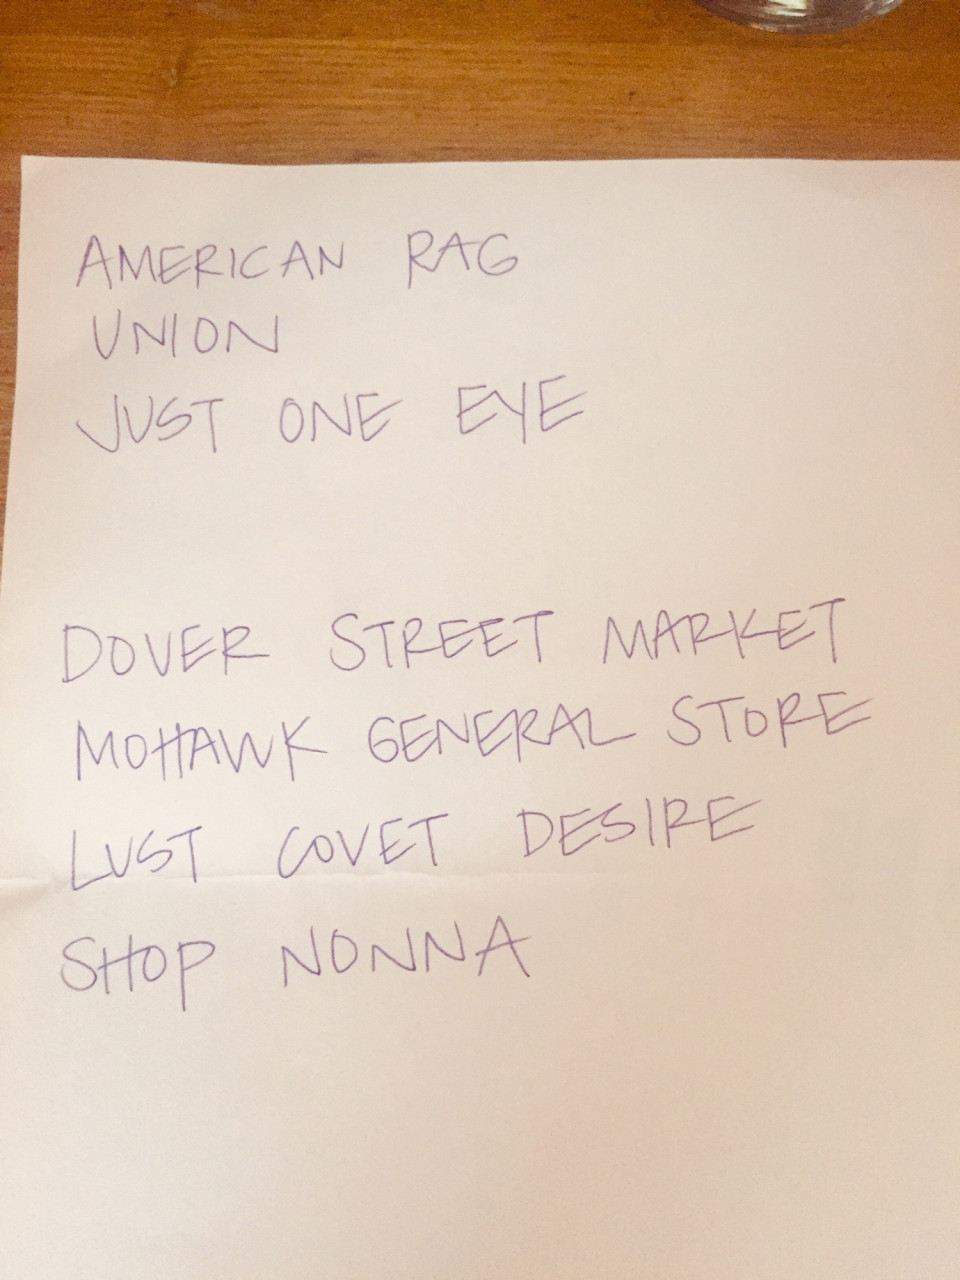 AMERICAN RAG
UNION
JUST ONE EYE
DOVER STREET MARKET
MOHAWK GENERAL STORE
LUST COVET DESIRE
SHOP NONNA